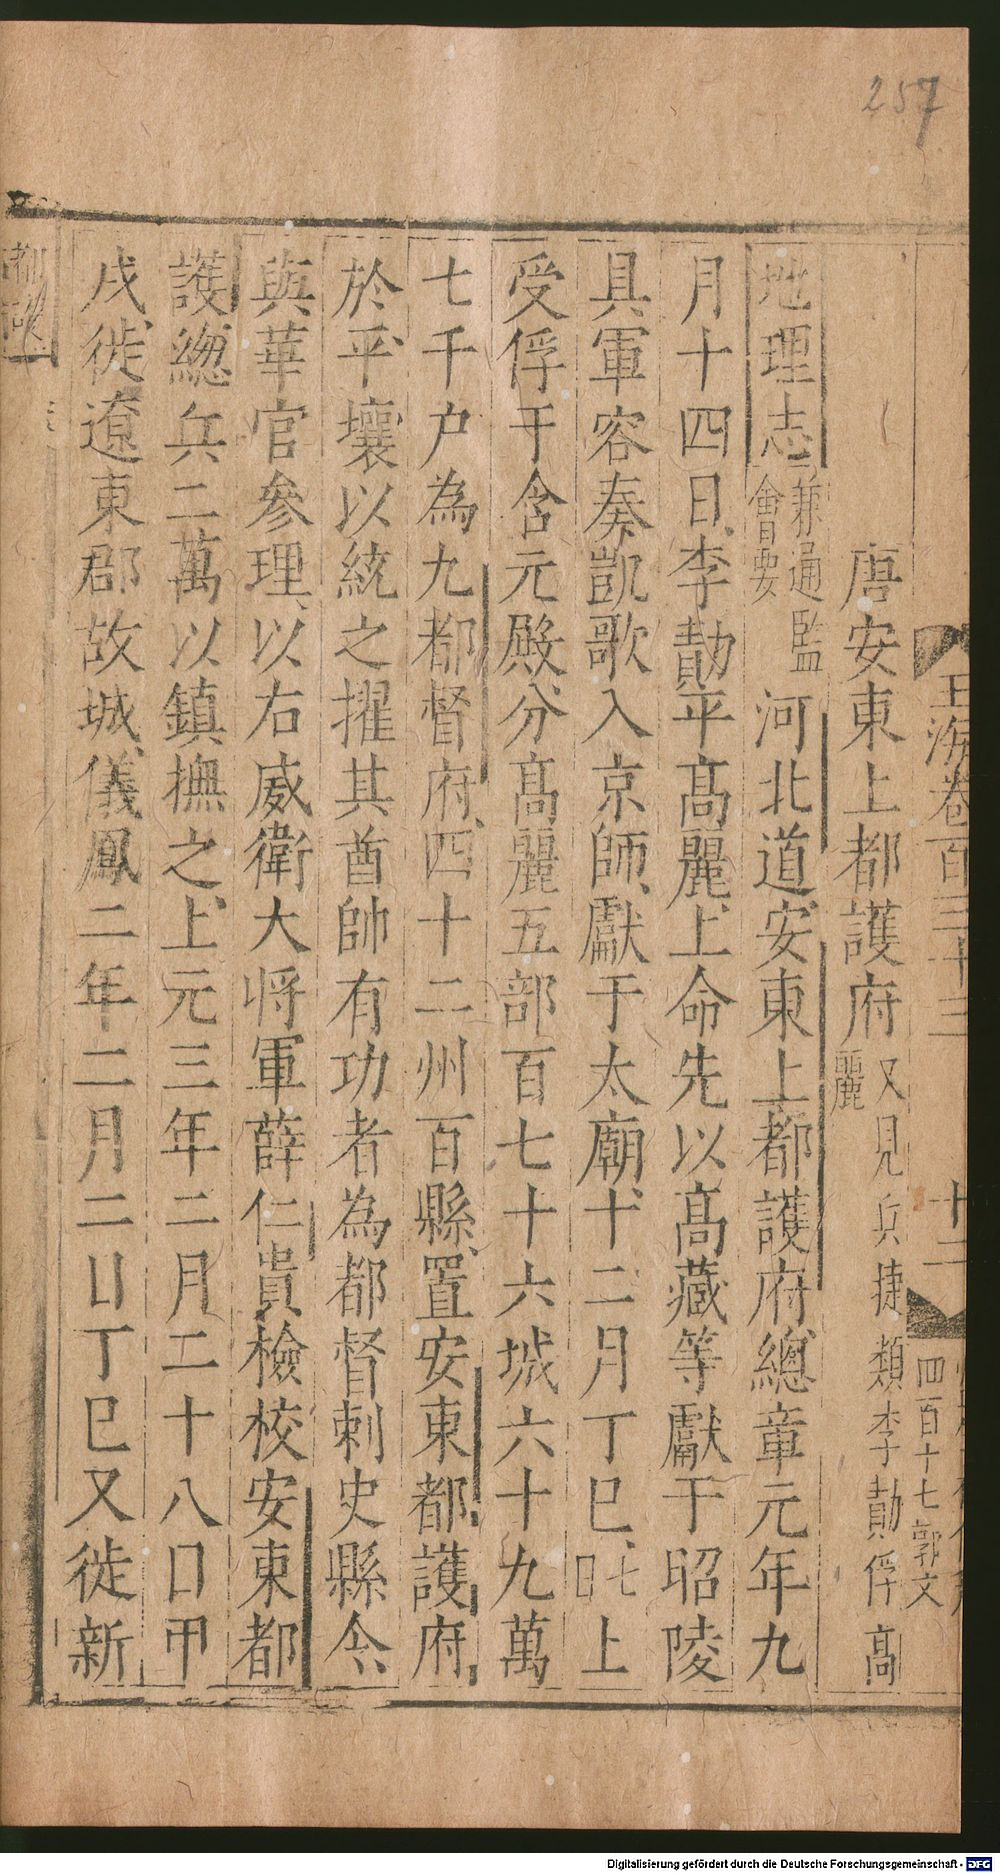 257
玉海卷百三十三
十二
四百十七郭文
唐安東上都護府又見兵捷類李勣俘高麗
地理志兼通監會要河北道安東上都護府總章元年九
月十四日李勣平髙麗上命先以髙藏等獻于昭陵
具軍容奏凱歌入京師獻于太廟十二月丁巳七日上
受俘于含元殿分髙麗五部百七十六城六十九萬
七千户為九都督府四十二州百縣置安東都護府
於平壤以統之擢其酋帥有功者為都督刺史縣令
與華官參理以右威衛大將軍薛仁貴檢校安東都
護緫兵二萬以鎮撫之上元三年二月二十八日甲
戌徙遼東郡故城儀鳳二年二月二日丁巳又徙新
都護
Digitalisierung gefördert durch die Deutsche Forschungsgemeinschaft - DFG